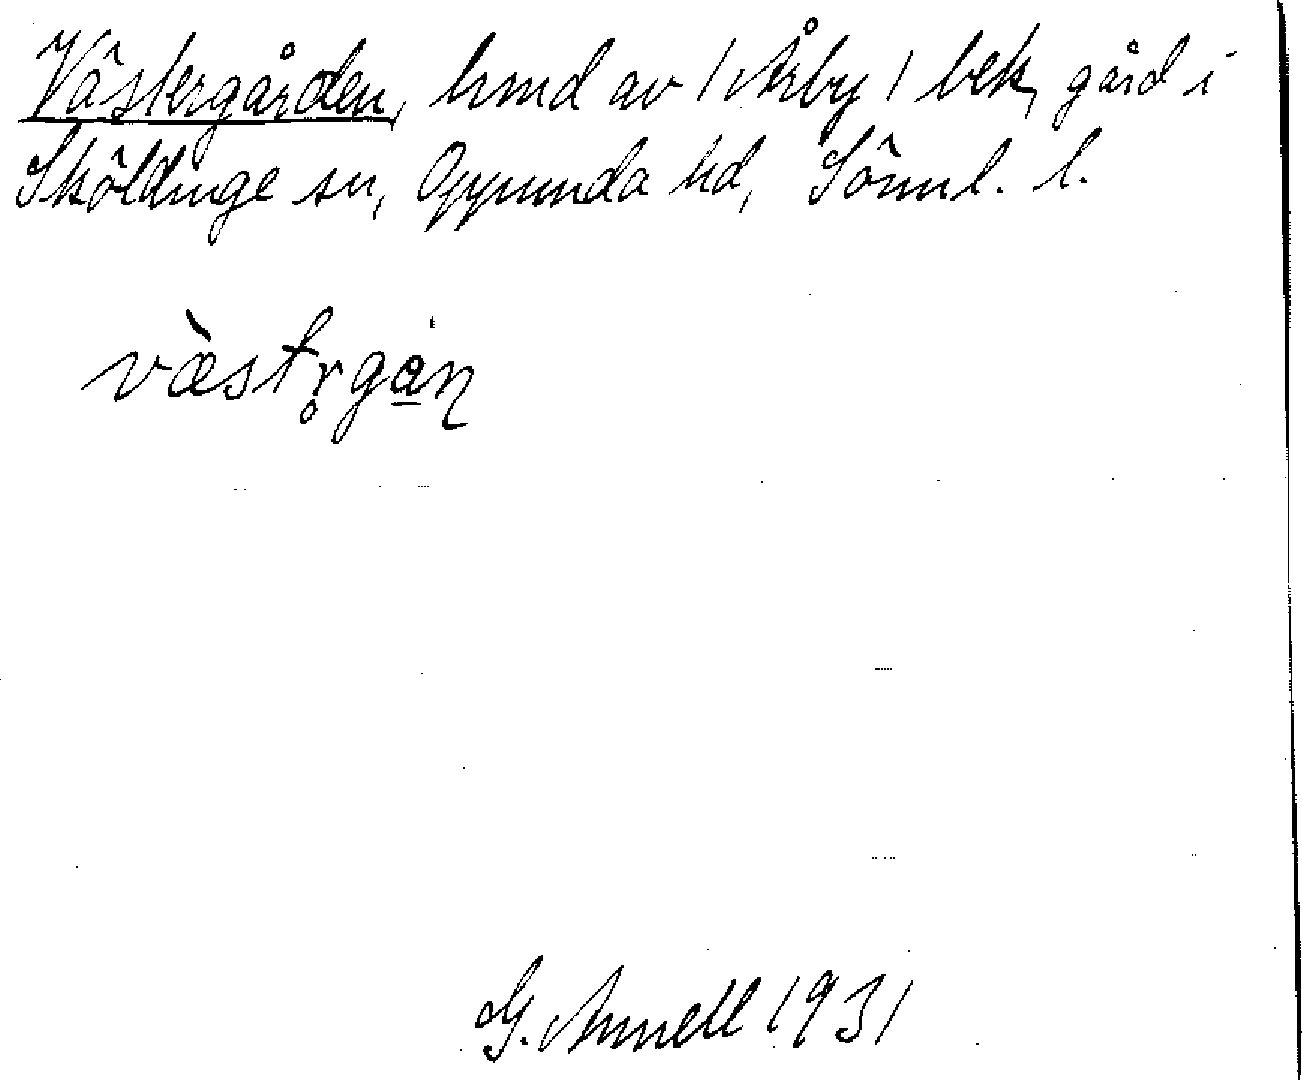 Västergården, hmd av / Årby / bek, gård i
Sköldinge sn, Oppunda hd, Söml. l.
vàstr̥gån
G. Annell 1931